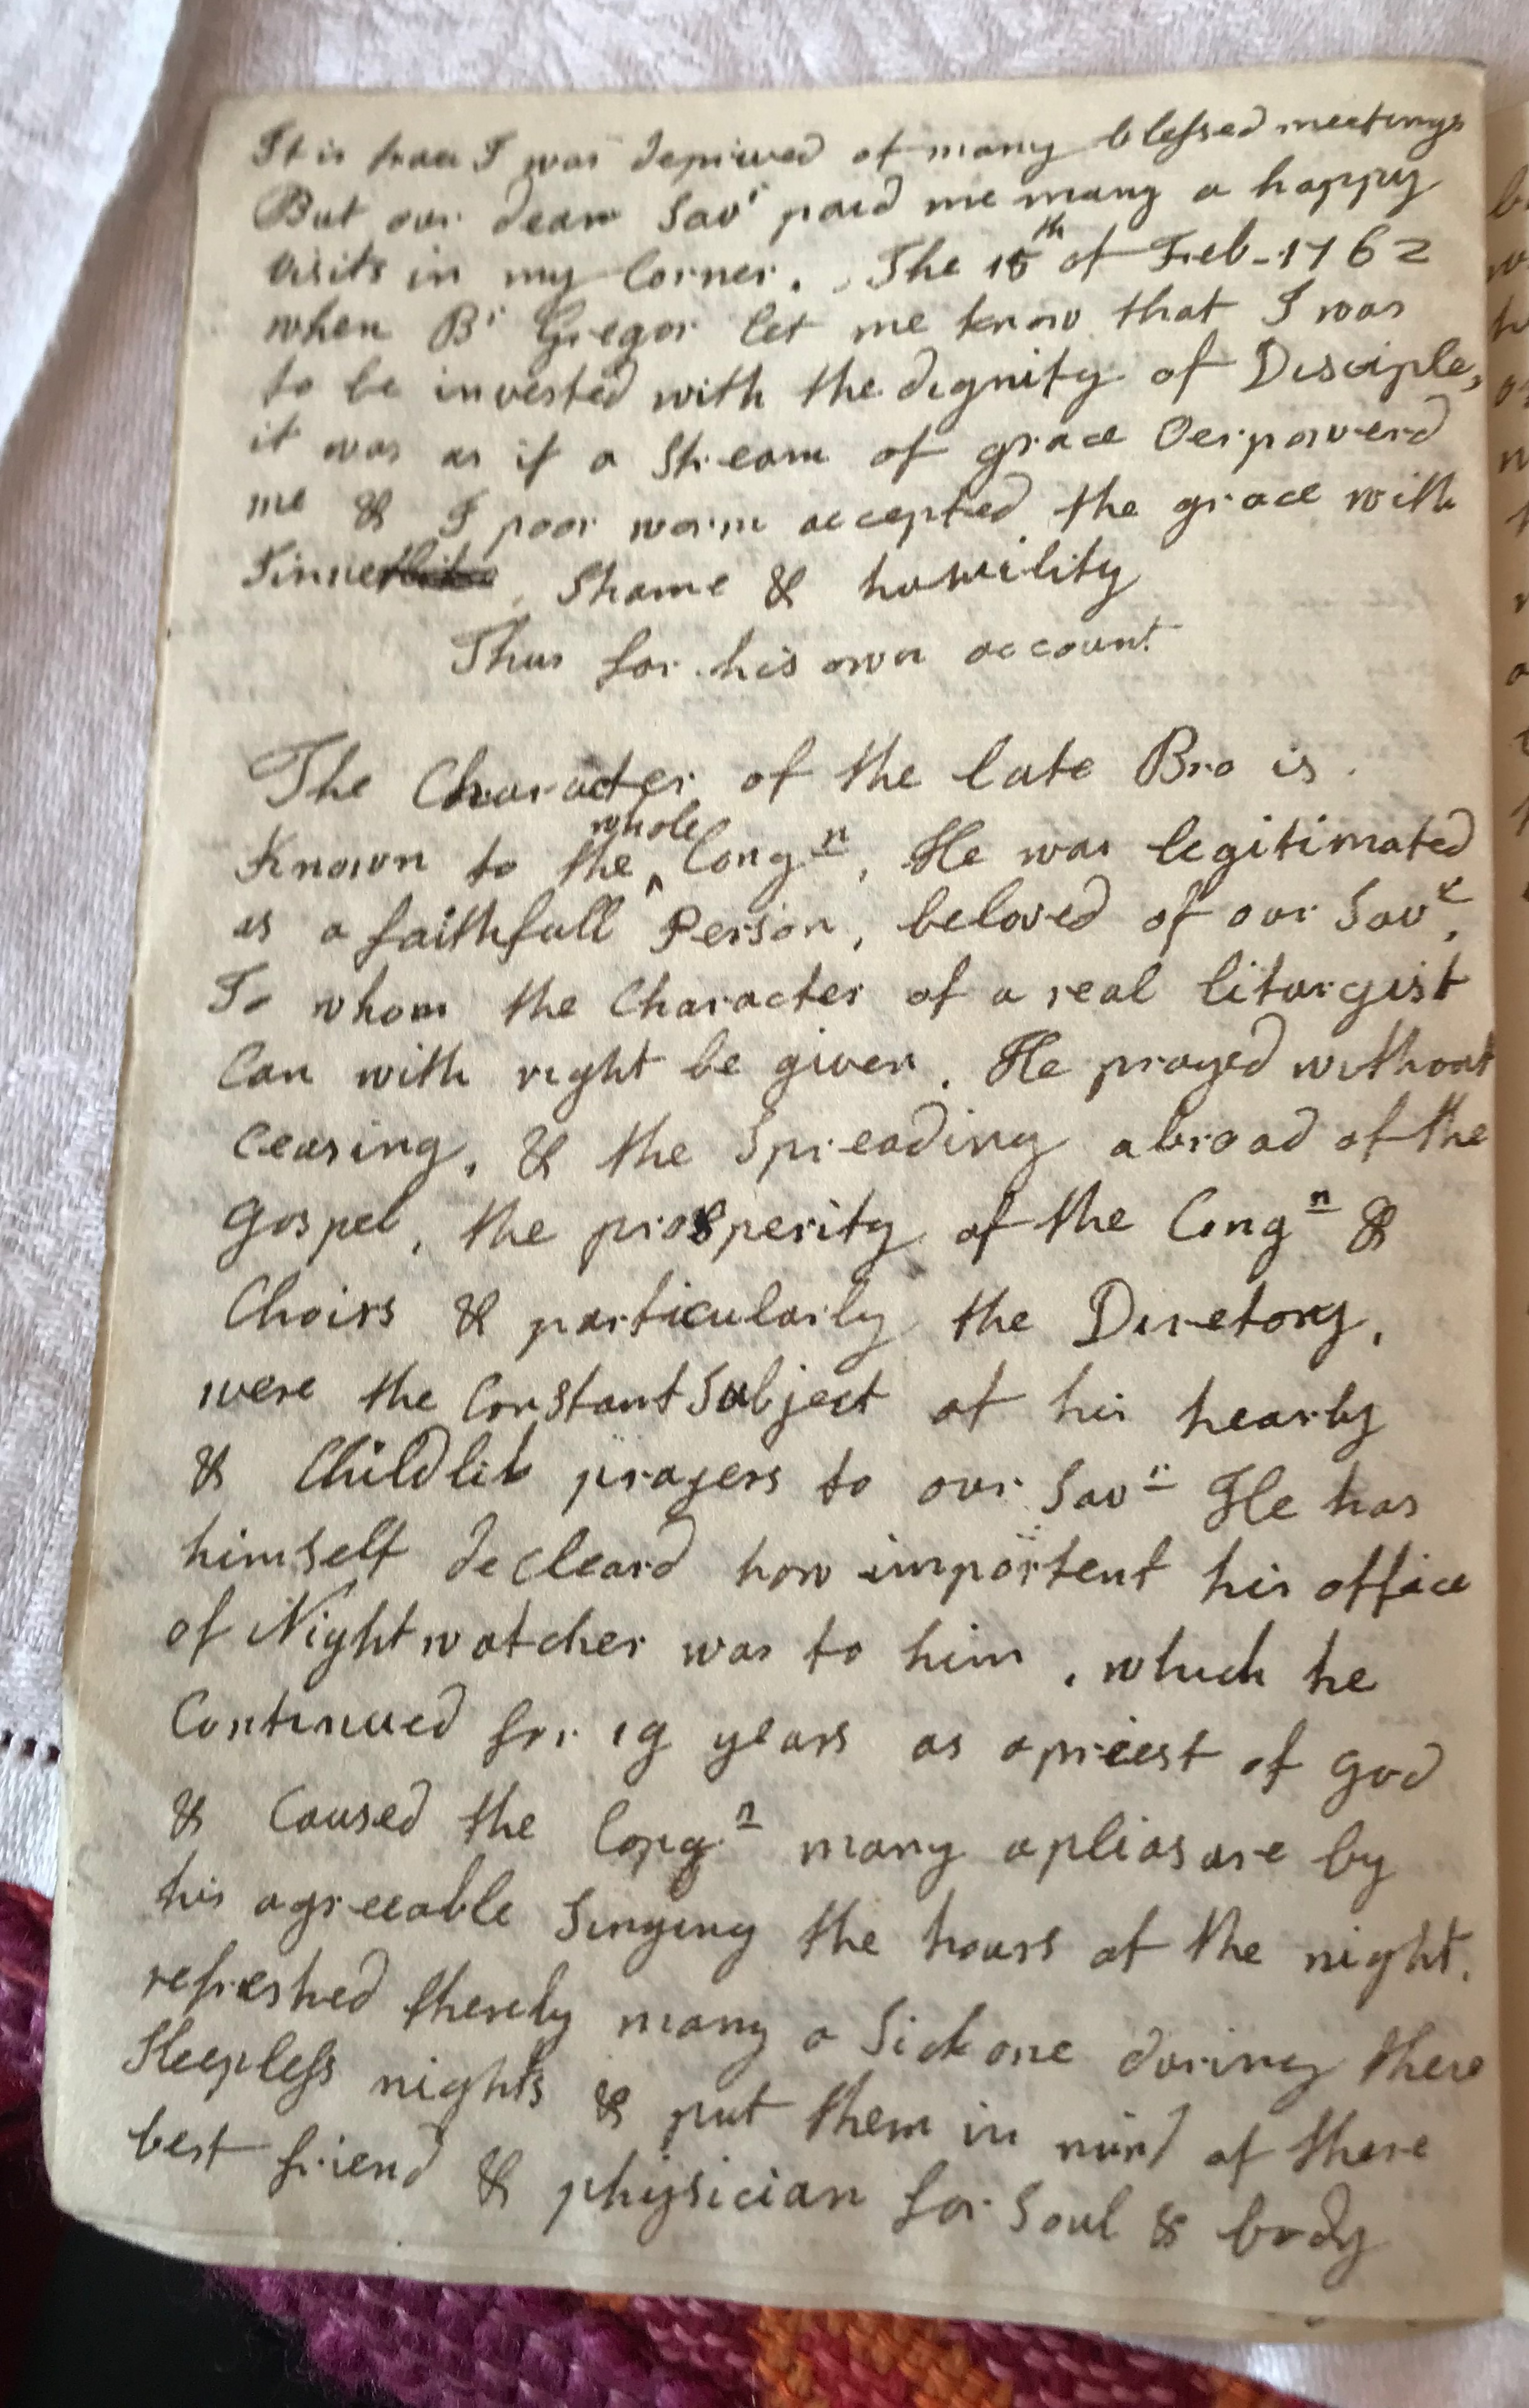 It is true I was deprived of many blessed meetings
But our dear Savr paid me many a happy
visits in my Corner. The 15th of Feb-1762
when Br Gregor let me know that I was
to be invested with the dignity of Disciple,
it was as if a Stream of grace Oerpowerd
me & I poor worm accepted the grace with
Sinner, Shame & humility
Thus far his own account
The Character of the late Bro is.
Known to the whole Congn, He was legitimated
as a faithfull Person, beloved of our Savr,
To whom the Character of a real liturgist
Can with right be given. He prayed without
Ceasing, & the Spreading abroad of the
Gospel, the prosperity of the Congn &
Choirs & particularly the Diretory,
were the Constant Subject of his hearly
& Childlik prayers to our Savr He has
himself decleard how importent his office
of Nightwatcher was to him, which he
Continued for 19 years as a prieest of God
& Caused the Congn many a pliasure by
his agreeable Singing the hours of the night.
refreshed thereby many a Sick one during there
Sleepless nights & put them in mind of there
best friend & physician for Soul & body